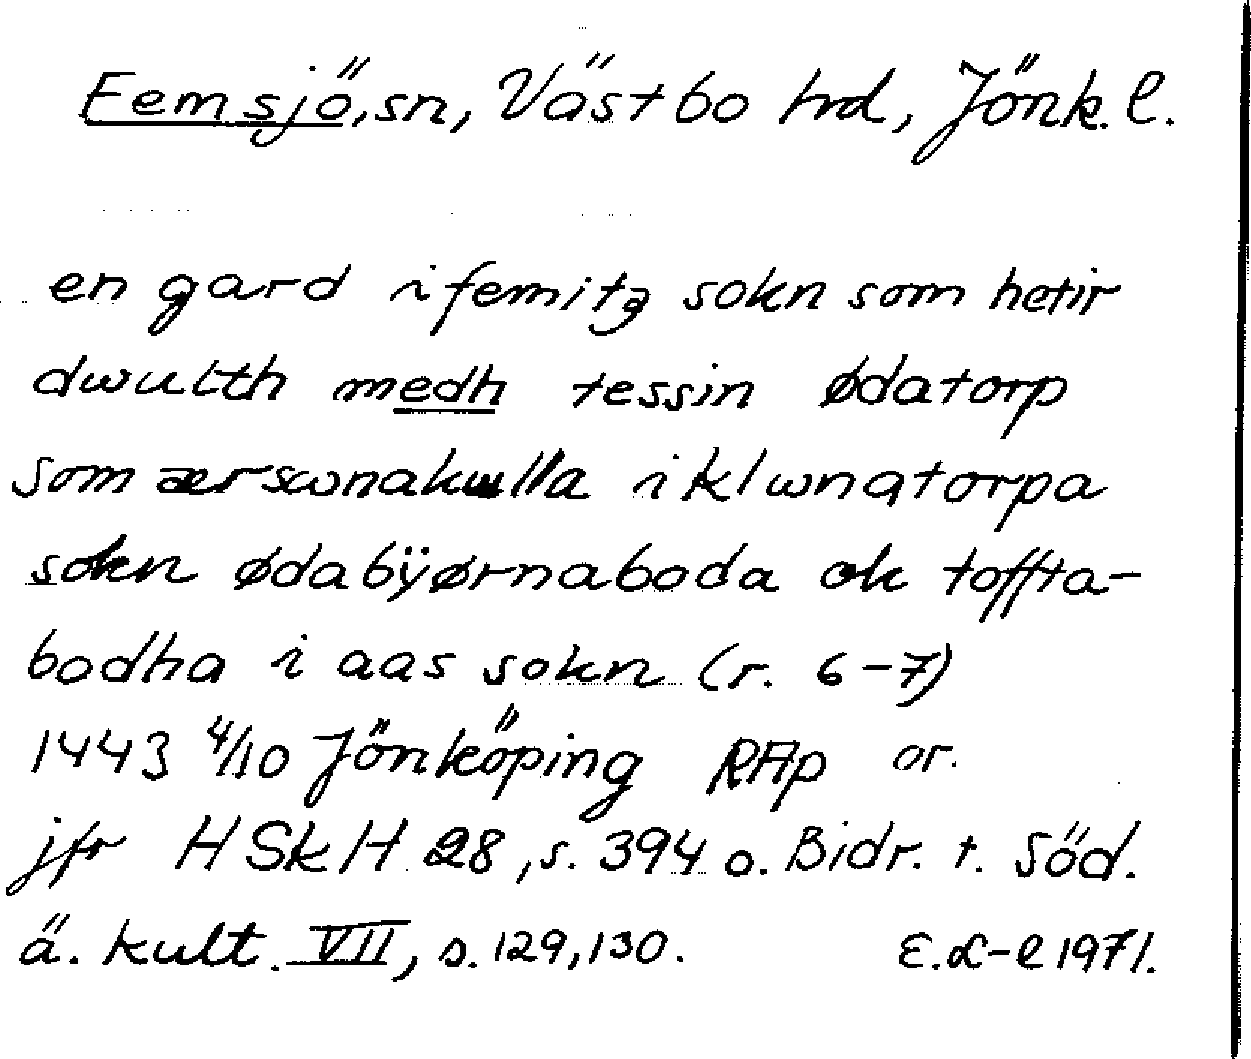 Femsjö, sn, Västbo hd, Jönk. l.
en gard i femitz sokn som hetir
dwulth medh tessin ødatorp
som ær swnakulla i klwngtorpa
sokn ødabÿørnaboda ok toffta-
bodha i aas sokn (r. 6-7)
1443 4/10 Jönköping RAp or.
jfr HSkH 28, s. 394 o. Bidr. t. Söd.
ä. kult. VII, s. 129, 130. E.L-l 1971.